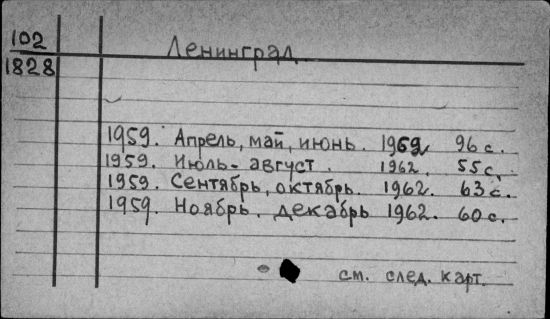 102
1828
Ленинград
1959. Апрель, май, июнь. 1962 96 с.
1959. Июль - август. 1962. 55 с.
1959. Сентябрь, октябрь. 1962. 63 с.
1959. Ноябрь, декабрь 1962. 60 с.
см. след. карт.